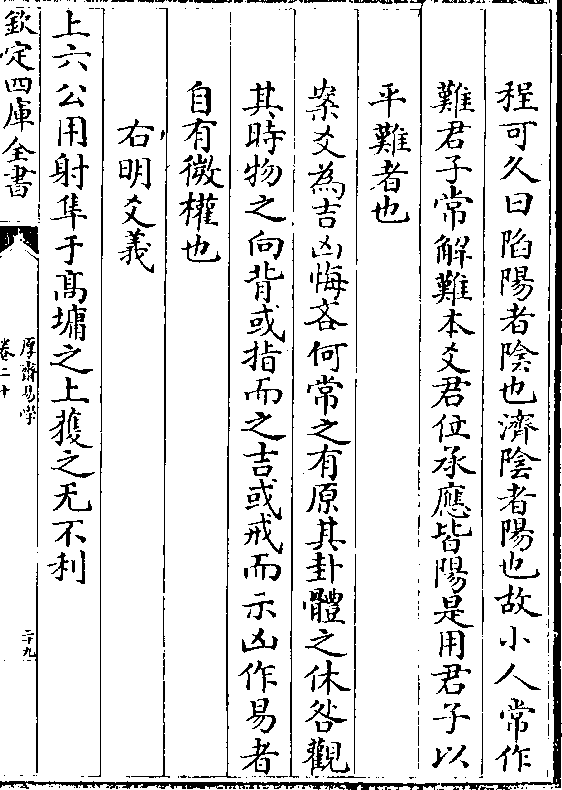 程可久曰陷陽者陰也濟陰者陽也故小人常作
難君子常解難本爻君位承應皆陽是用君子以
平難者也
案爻為吉凶悔吝何常之有原其卦體之休咎觀
其時物之向背或指而之吉或戒而示凶作易者
自有微權也
右明爻義
上六公用射隼于髙墉之上獲之无不利
欽定四庫全書
厚齋易學
卷二十
二十九